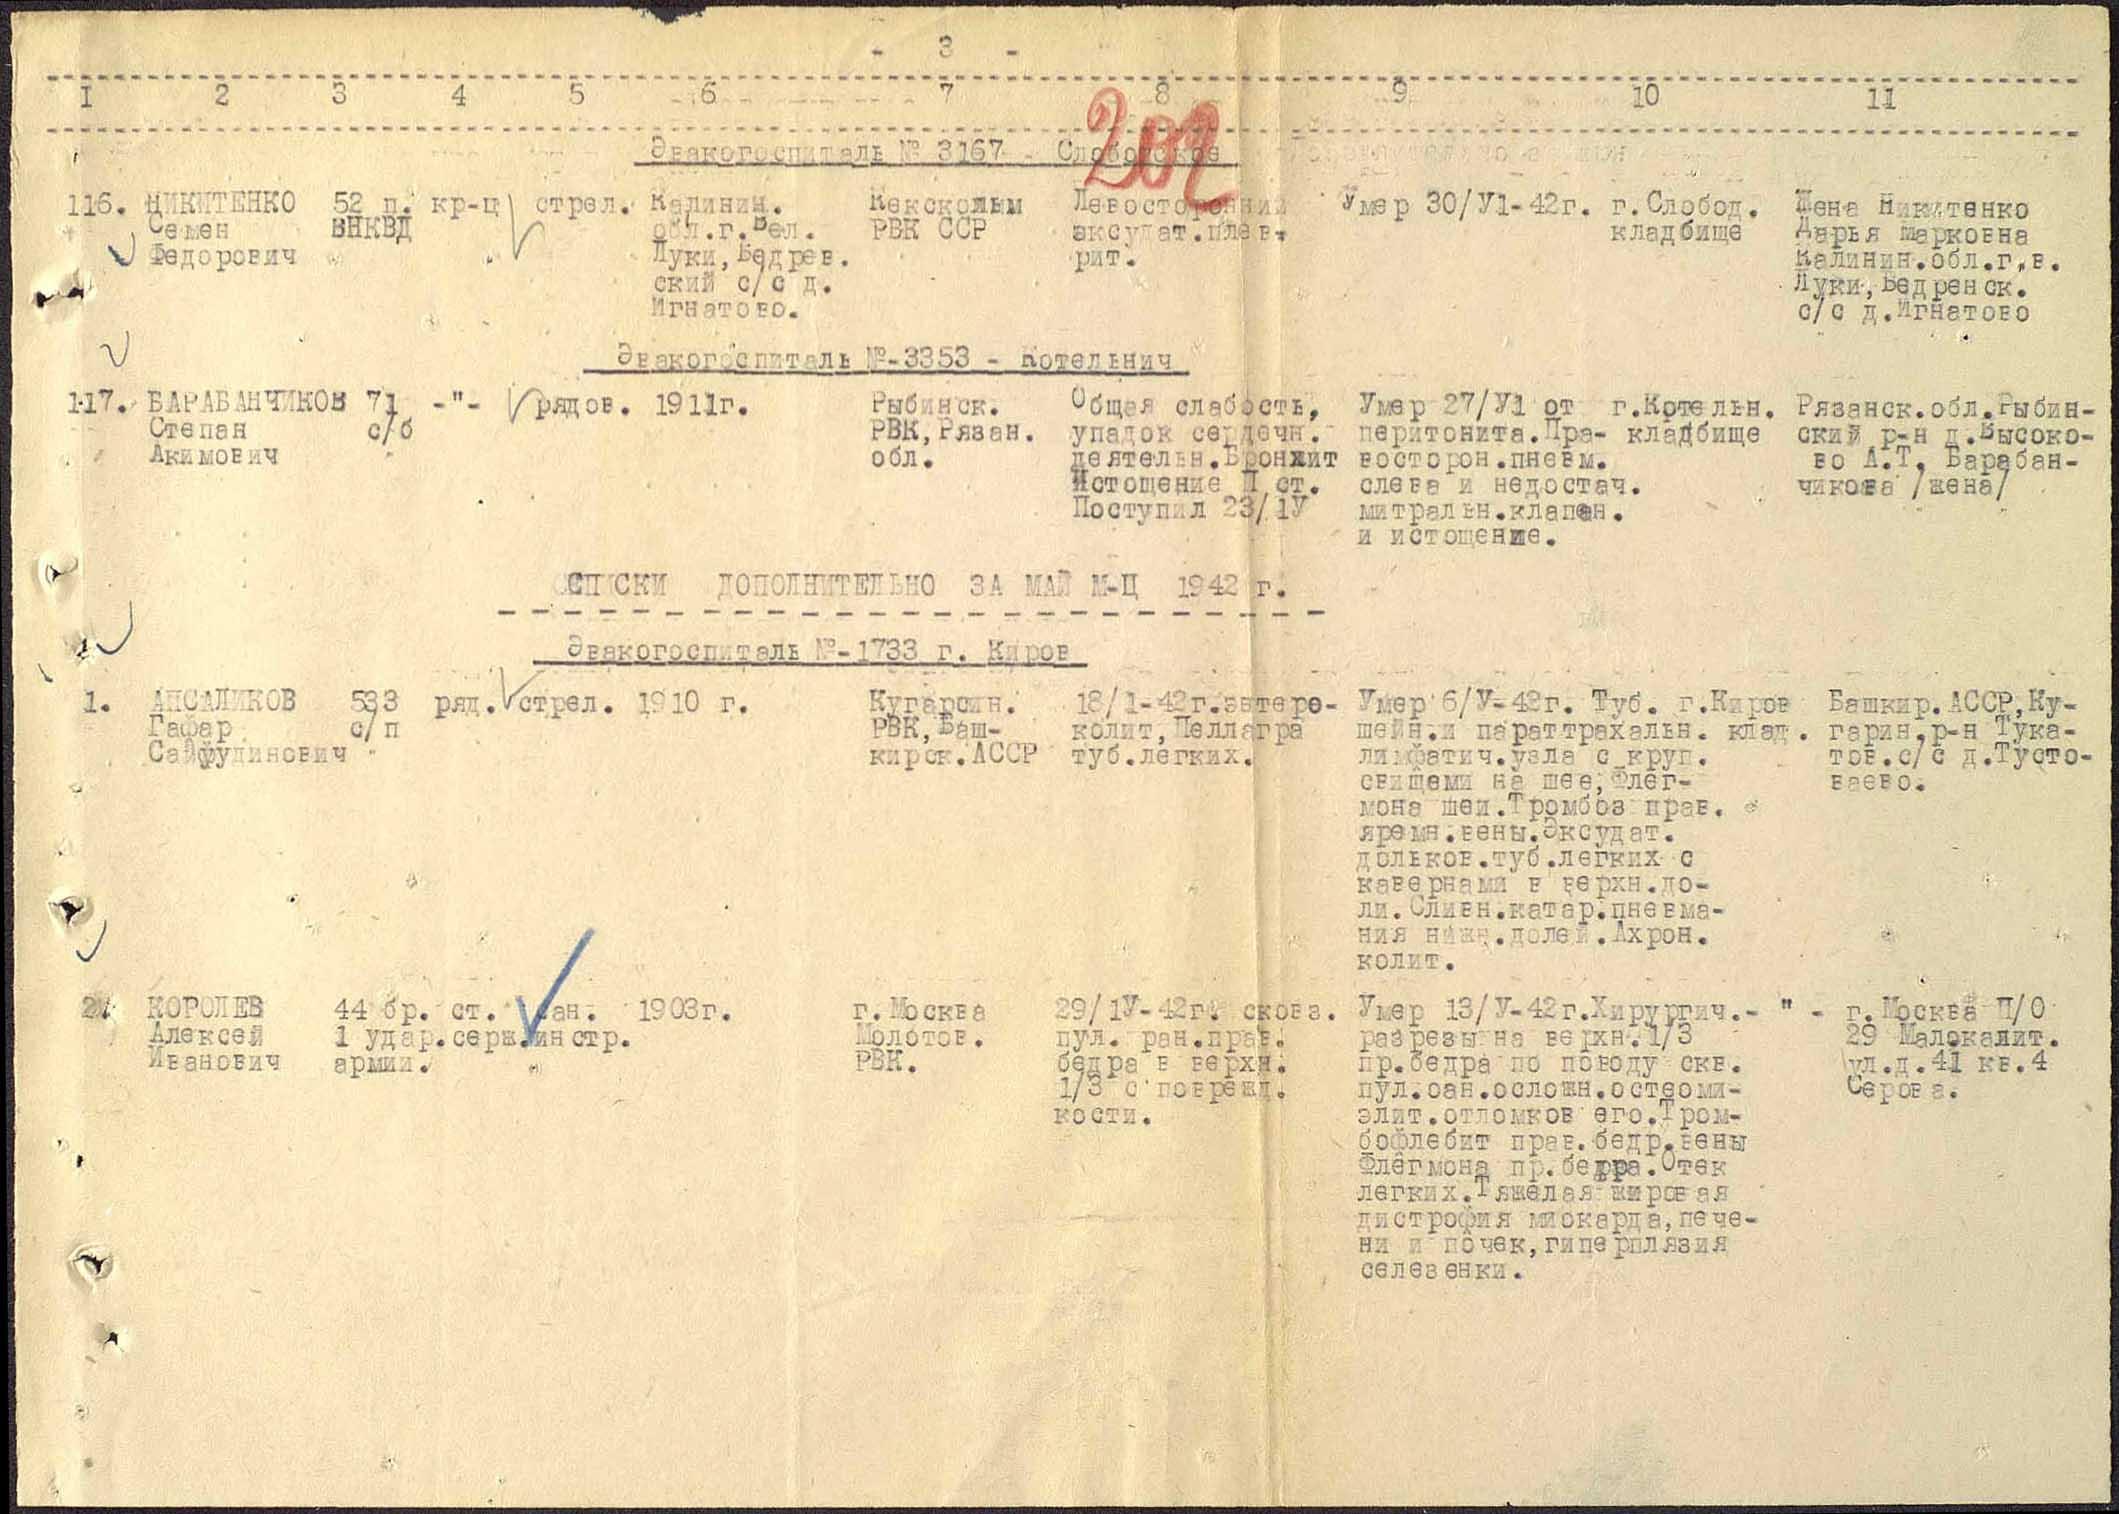 - 3 -
I 2 3 4 5 6 7 8 9 10 11
202
Эвакогоспиталь № 3167 - Слободское
116. НИКИТЕНКО 52 п. кр-ц стрел. Калинин. Кексколым Левосторонний Умер 30/У1-42г. г.Слобод. Жена Никитенко
Семен ВНКВД обл.г.Вел. РВК ССР эксудат.плев- кладбище Дарья Марковна
Федорович Луки,Бедрев. рит. Калинин.обл.г.в.
ский с/с д. Луки,Бедренск.
Игнатово. с/с д.Игнатово
Эвакогоспиталь №-3353 - Котельнич
117. БАРАБАНЧИКОВ 71 -"- рядов. 1911г. Рыбинск. Общая слабость, Умер 27/У1 от г.Котельн. Рязанск.обл.Рыбин-
Степан с/б РВК,Рязан. упадок сердечн. перитонита.Пра- кладбище ский р-н д.Высоко-
Акимович обл. деятельн.Бронхит восторон.пневм. во А.Т. Барабан-
Истощение П ст. слева и недостач. чикова /жена/
Поступил 23/1У митральн.клапан.
и истощение.
СПИСКИ ДОПОЛНИТЕЛЬНО ЗА МАЙ М-Ц 1942 г.
Эвакогоспиталь №-1733 г. Киров
1. АПСАЛИКОВ 533 ряд. стрел. 1910 г. Кугарсин. 18/1-42г.энтеро- Умер 6/У-42г. Туб. г.Киров Башкир.АССР,Ку-
Гафар с/п РВК,Баш- колит,Пеллагра шейн.и параттрахальн. клад. гарин.р-н Тука-
Сайфудинович кирск.АССР туб.легких. лимфатич.узла с круп. тов.с/с д.Тусто-
свищеми на шее,Флег- ваево.
мона шеи.Тромбоз прав.
яремн.вены.Эксудат.
дольков.туб.легких с
кавернами в верхн.до-
ли.Сливн.катар.пневма-
ния нижн.долей.Ахрон.
колит.
2. КОРОЛЕВ 44 бр. ст. сан. 1903г. г.Москва 29/1У-42г. сквоз. Умер 13/У-42г.Хирургич.- " - г.Москва П/О
Алексей 1 удар.серж.инстр. Молотов. пул. ран.прав. разрезы на верхн.1/3 29 Малокалит.
Иванович армии. РВК. бедра в верхн. пр.бедра по поводу скв. ул.д.41 кв.4
1/3 с поврежд. пул.оан.осложн.остеоми- Серова.
кости. элит.отломков его.Тром-
бофлебит прав.бедр.вены
Флегмона пр.бедра.Отек
легких.Тяжелая жировая
дистрофия миокарда,пече-
ни и почек,гиперплязия
селезенки.